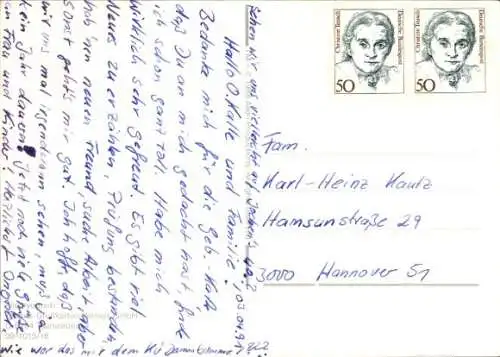 Hallo Kalle und Familie!
Bedanke mich für die Geb.-Karte
daß Du an mich gedacht hast, finde
ich schon ganz toll. Habe mich
wirklich sehr gefreut. Es gibt viel
Neues zu erzählen, Prüfung bestanden
hab 'nen neuen Freund, suche Arbeit, aber
sonst geht's mir gut. Ich hoffe, daß
wir uns mal irgendwann sehen, muß ja
kein Jahr dauern! Jetzt noch viele Grüße
an Frau und Kinder! Herzlichst
wie war das mit dem
uns vielleicht
03.04.91
Christine Teusch
Deutsche Bundespost
50
Christine Teusch
Deutsche Bundespost
50
Fam.
Karl-Heinz Kautz
Hamsunstraße 29
3000 Hannover 51